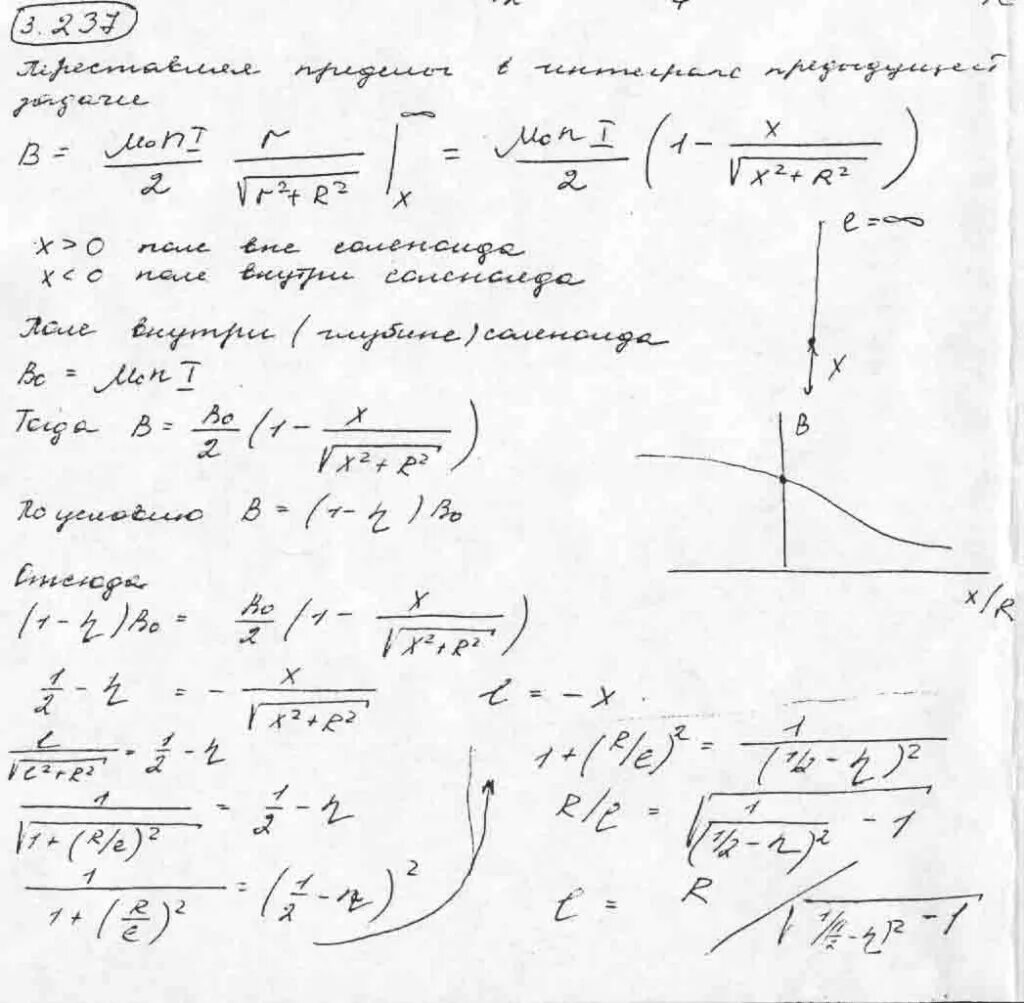 3.237
Переставляя пределы в интеграле предыдущей
задаче
B = μ₀nI/2 · r/√(r²+R²) |ₓ^∞ = μ₀nI/2 (1 - x/√(x²+R²))
l = ∞
x > 0 поле вне соленоида
x < 0 поле внутри соленоида
Поле внутри (глубине) соленоида
x
B₀ = μ₀nI
B
Тогда B = B₀/2 (1 - x/√(x²+R²))
По условию B = (1-η)B₀
x/R
Отсюда
(1-η)B₀ = B₀/2 (1 - x/√(x²+R²))
1/2 - η = - x/√(x²+R²) l = -x.
l/√(l²+R²) = 1/2 - η
1/√(1+(R/l)²) = 1/2 - η
1/(1+(R/l)²) = (1/2 - η)²
1+(R/l)² = 1/(1/2 - η)²
R/l = √(1/(1/2 - η)² - 1)
l = R/√(1/(1/2 - η)² - 1)